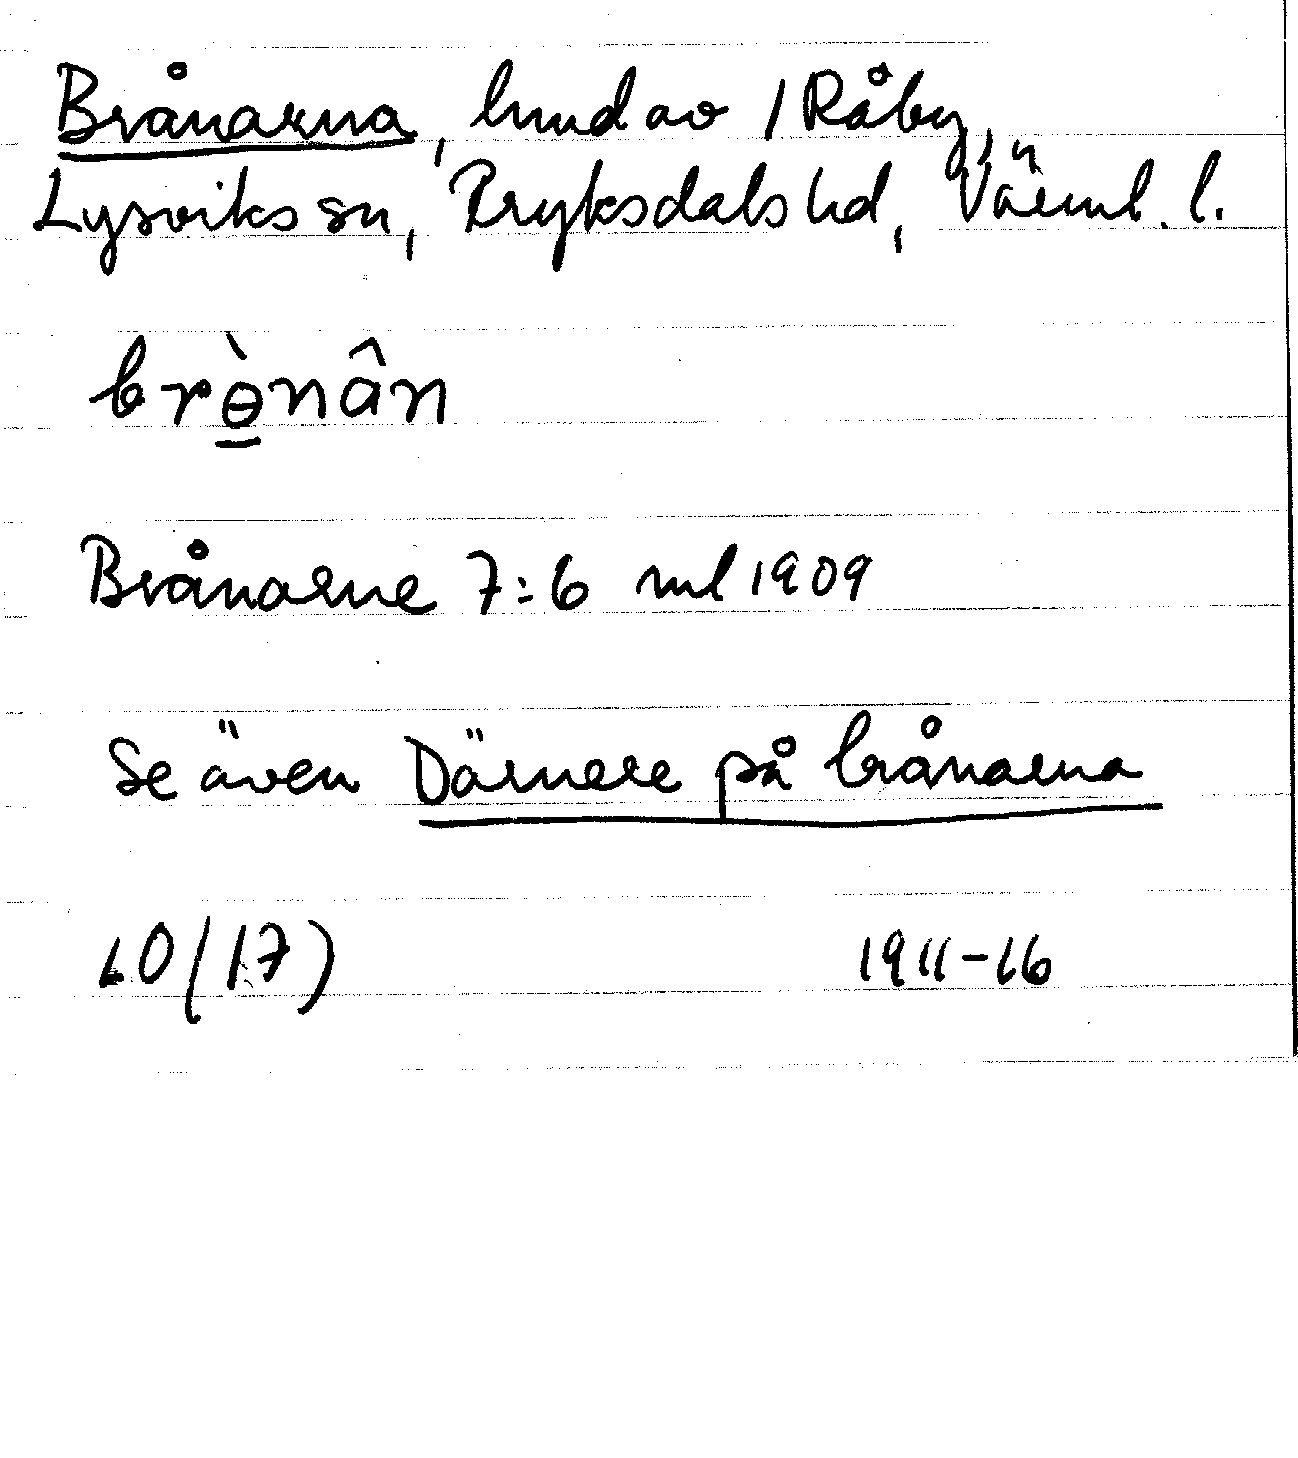 Brånarna, hmd av 1 Råby,
Lysviks sn, Fryksdals hd, Värml. l.
brɵ̠̀nân
Brånarne 7:6 ml 1909
Se även Därnere på brånarna
10(17) 1911-16